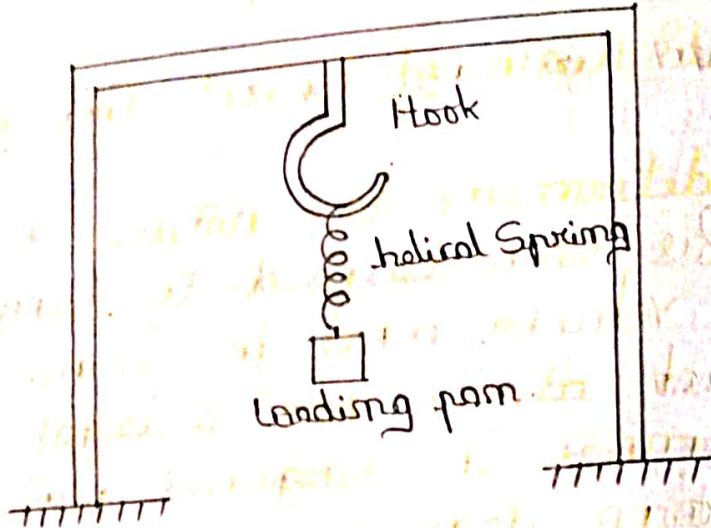 Hook
helical Spring
Loading pan.